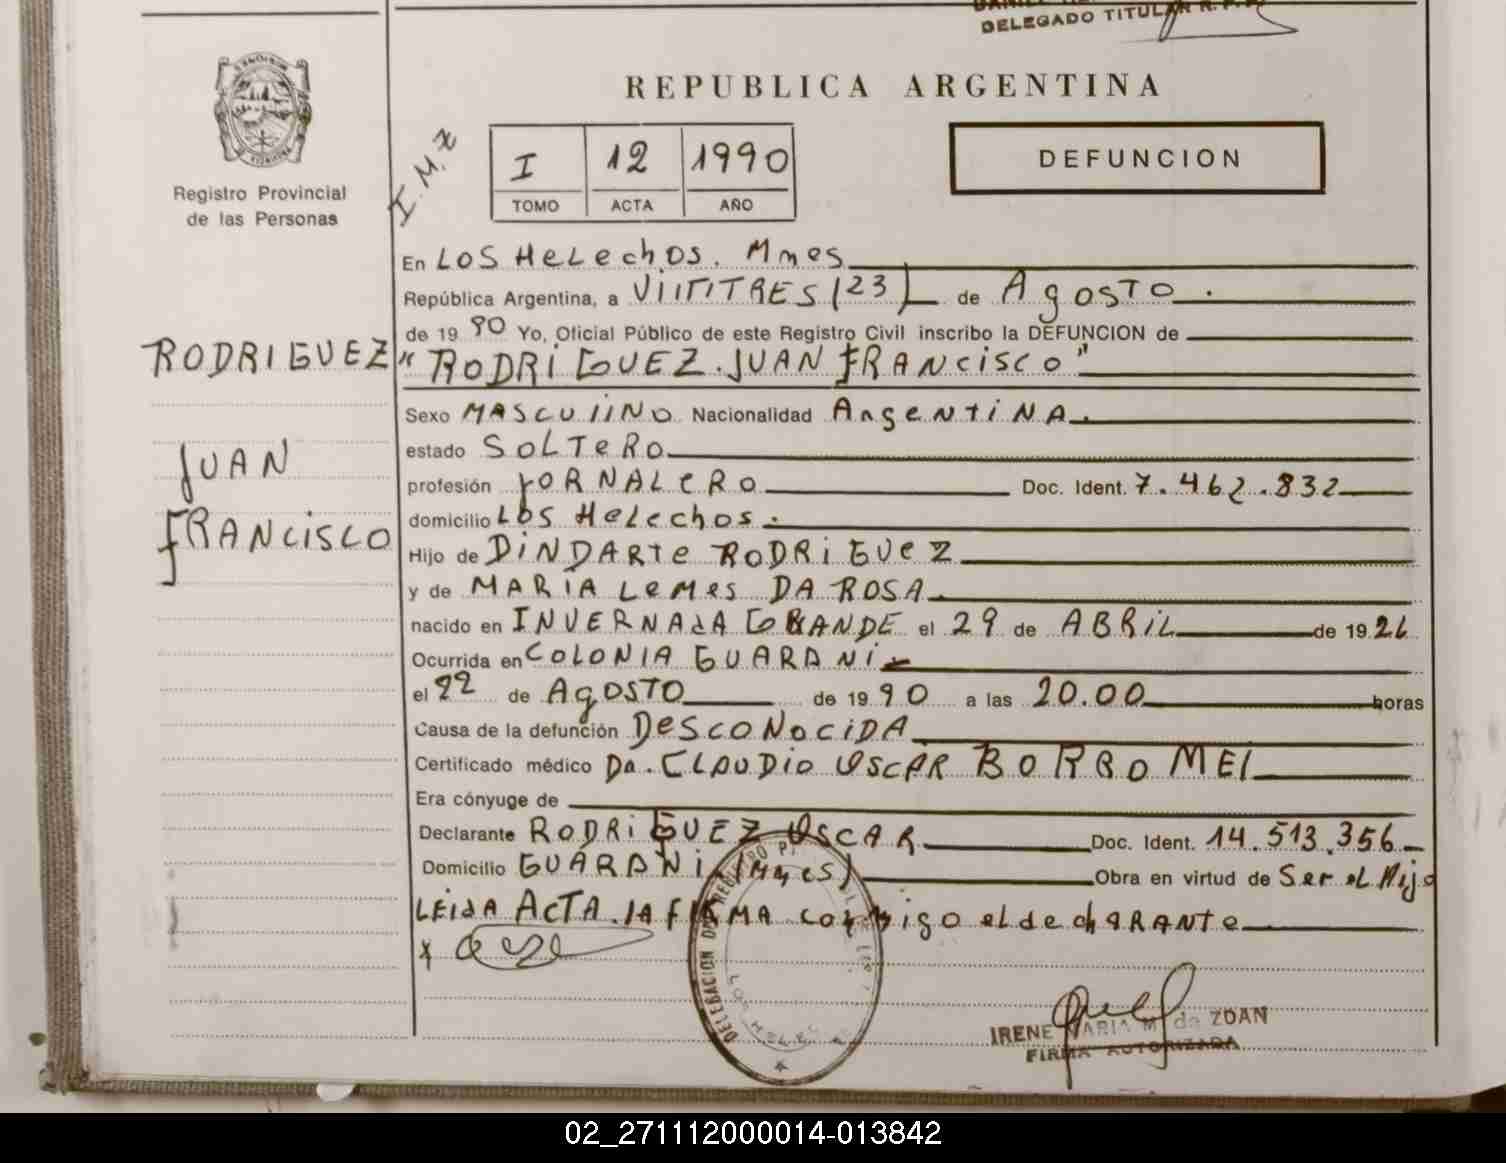 DELEGADO TITULAR R. P. P.
REPUBLICA ARGENTINA
Registro Provincial
de las Personas
I.M.x
I 12 1990
TOMO ACTA AÑO
DEFUNCION
En LOS HeLechos. Mnes
República Argentina, a VIITITRES (23) de Agosto.
de 19 90 Yo, Oficial Público de este Registro Civil inscribo la DEFUNCION de
RODRIGUEZ
JUAN
FRANCISCO
"RODRIGUEZ. JUAN FRANCISCO"
Sexo MASCULINO Nacionalidad ArgeNTiNA.
estado SOLTeRO
profesión JORNALERO Doc. Ident. 7.462.832
domicilio LOS HeLechos.
Hijo de DINDARTe RODRIGUeZ
y de MARIA LeMes DA ROSA.
nacido en INVERNAdA GRANDE el 29 de ABRiL de 1926
Ocurrida en COLONIA GUARANI
el 22 de AgOSTO de 19 90 a las 20.00 horas
Causa de la defunción DesCONOCiDA
Certificado médico Dr. CLAUDIO OSCAR BORROMEI
Era cónyuge de
Declarante RODRiGUEZ OSCAR Doc. Ident. 14.513.356
Domicilio GUARANi (Mnes) Obra en virtud de Ser eL Hijo
LEIdA ACTA. lA FIRMA conmigo el decLARANTe
x
DELEGACION DEL REGISTRO P.
LOS HELECHOS
IRENE MARIA M. de ZOAN
FIRMA AUTORIZADA
02_271112000014-013842